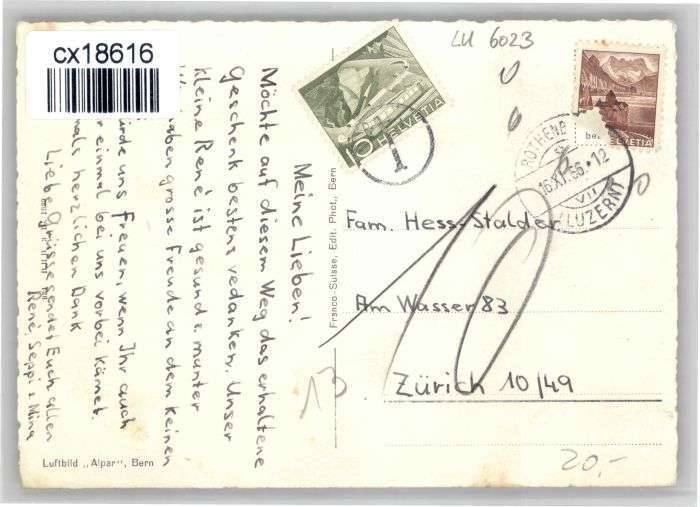 cx18616
LU 6023
Meine Lieben!
Möchte auf diesem Weg das erhaltene
Geschenk bestens verdanken. Unser
kleine René ist gesund u. munter
haben grosse Freude an dem kleinen
würde uns freuen, wenn Ihr auch
einmal bei uns vorbei kämet.
mals herzlichen Dank
Liebe Grüsse sendet Euch allen
René, Seppi u. Mina
10 HELVETIA
T
HELVETIA
ROTHENB
16.XI.56.-12
VII
(LUZERN)
10
Fam. Hess-Stalder
Am Wasser 83
Zürich 10/49
13
20,-
Franco-Suisse, Edit. Phot., Bern
Luftbild „Alpar", Bern